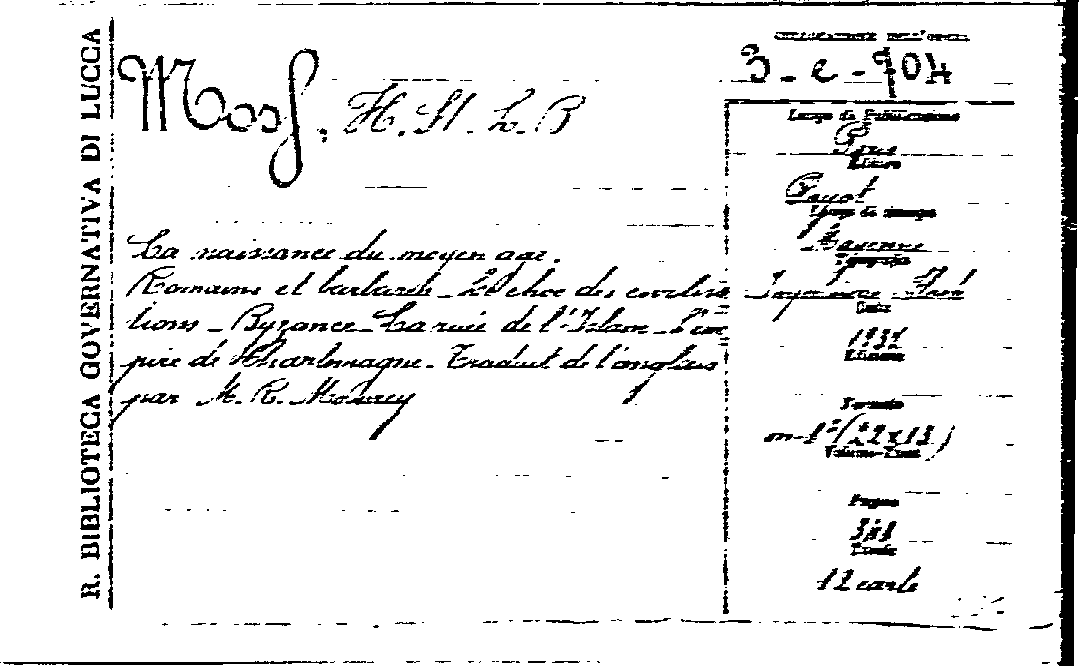 R. BIBLIOTECA GOVERNATIVA DI LUCCA
COLLOCAZIONE DELL'OPERA
3-c-904
Moss, H. St. L. B
La naissance du moyen age.
Romains et barbares - Le choc des civilisa
tions - Byzance - La ruée de l'Islam - L'em
pire de Charlemagne. Traduit de l'anglais
par M. R. Mourey
Luogo di Pubblicazione
Paris
Editore
Payot
Luogo di stampa
Mayenne
Tipografia
Imprimerie Floch
Data
1937
Edizione
Formato
in-8°(22x13)
Volume-Tomi
Pagine
Tavole
12 carte